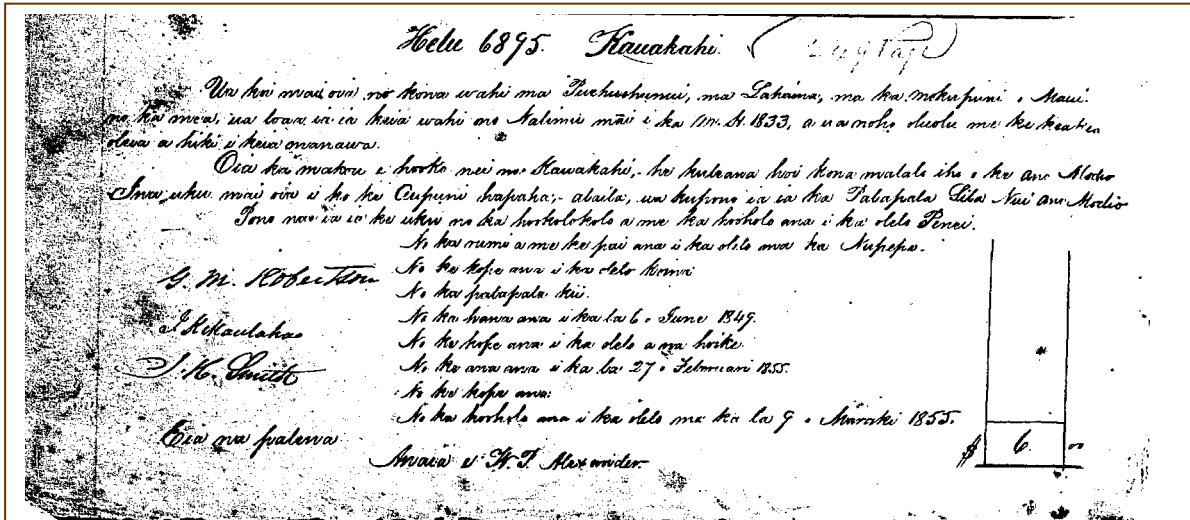 Helu 6895. Kauakahi.
Ua koi mai oia no kona wahi ma Puehuehunui, ma Lahaina, ma ka mokupuni o Maui.
no ka mea, ua loaa ia ia keia wahi no Nalimu mai i ka M.H. 1833, a ua noho oluolu me ke keakea
oleia a hiki i keia manawa.
Oia ka makou e hooko nei no Kauakahi,- he kuleana hoi kona malalo iho o ke ano Alodio
Ina uku mai oia i ko ke Aupuni hapaha,- alaila, ua kupono ia ia ka Palapala Sila Nui ano Alodio
Pono nae ia ia ke uku no ka hookolokolo a me ka hooholo ana i ka olelo Penei.
No ka rumi a me ke pai ana i ka olelo ma ka Nupepa.
No ke kope ana i ka olelo koina
No ka palapala kii.
No ka hana ana i ka la 6 o June 1849.
No ke kope ana i ka olelo a na hoike
No ke ana ana i ka la 27 o Feberuari 1855.
No ke kope ana:
No ka hooholo ana i ka olelo ma ka la 9 o Maraki 1855.
$ 6 00
G. M. Robertson
J Kekaulahao
J. H. Smith
Eia na palena
Anaia e W. P. Alexander